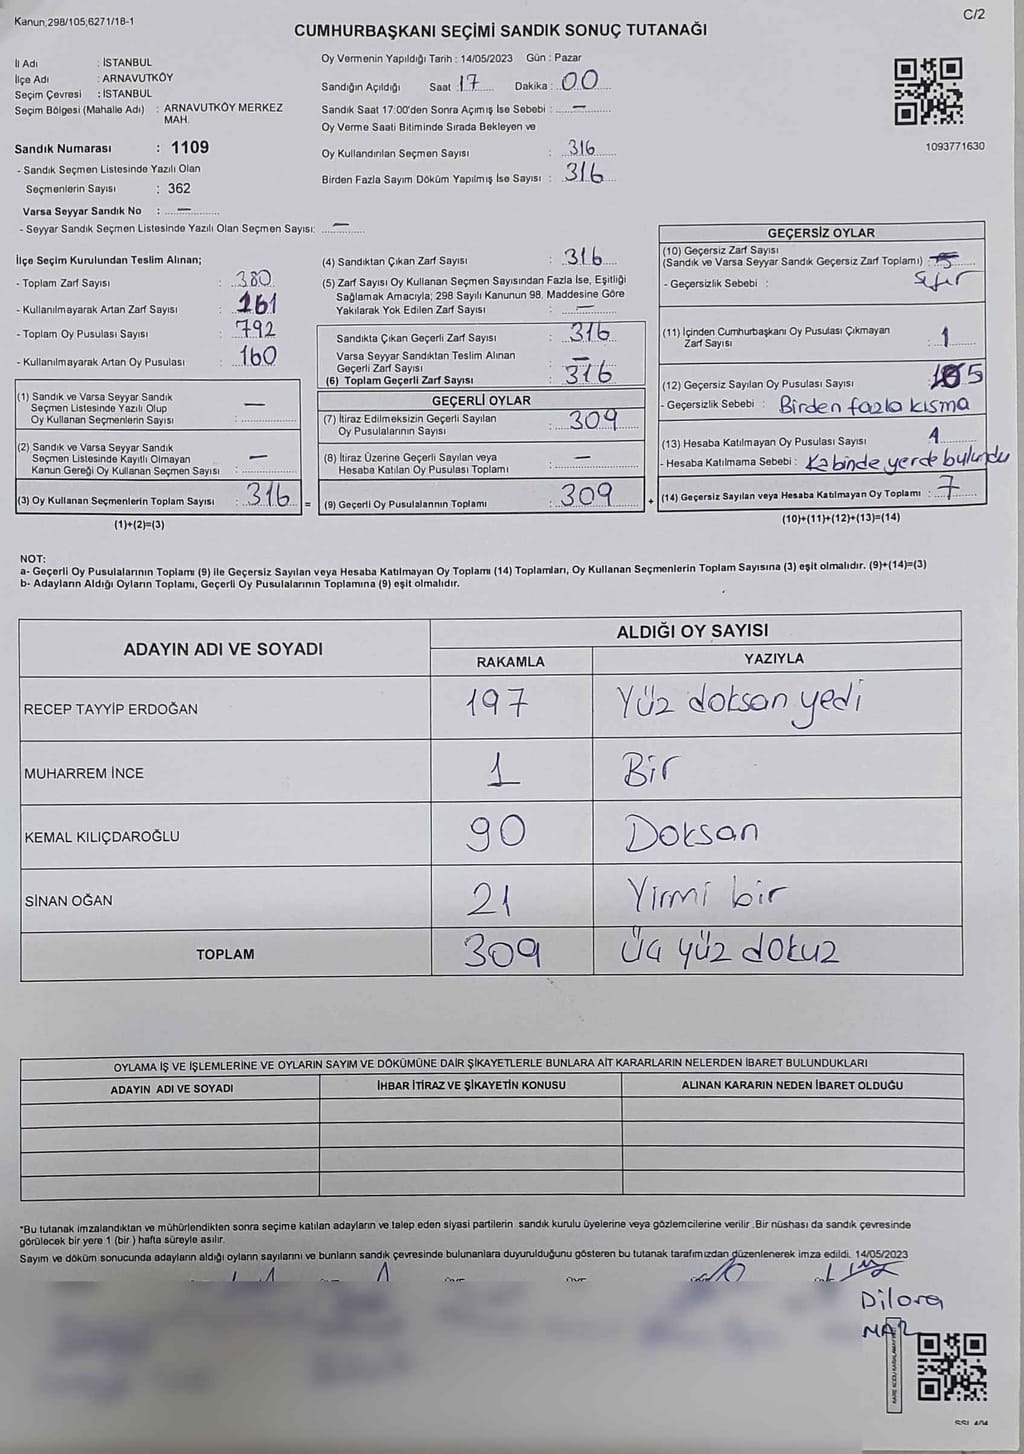 Kanun,298/105,6271/18-1
C/2
CUMHURBAŞKANI SEÇİMİ SANDIK SONUÇ TUTANAĞI
İl Adı : İSTANBUL
İlçe Adı : ARNAVUTKÖY
Seçim Çevresi : İSTANBUL
Seçim Bölgesi (Mahalle Adı) : ARNAVUTKÖY MERKEZ
MAH.
Sandık Numarası : 1109
- Sandık Seçmen Listesinde Yazılı Olan
Seçmenlerin Sayısı : 362
Varsa Seyyar Sandık No : —
- Seyyar Sandık Seçmen Listesinde Yazılı Olan Seçmen Sayısı: —
Oy Vermenin Yapıldığı Tarih : 14/05/2023 Gün : Pazar
Sandığın Açıldığı Saat : 17 Dakika : 00
Sandık Saat 17:00'den Sonra Açımış İse Sebebi : —
Oy Verme Saati Bitiminde Sırada Bekleyen ve
Oy Kullandırılan Seçmen Sayısı : 316
Birden Fazla Sayım Döküm Yapılmış İse Sayısı : 316
1093771630
İlçe Seçim Kurulundan Teslim Alınan;
- Toplam Zarf Sayısı : 380
- Kullanılmayarak Artan Zarf Sayısı : 161
- Toplam Oy Pusulası Sayısı : 792
- Kullanılmayarak Artan Oy Pusulası : 160
(1) Sandık ve Varsa Seyyar Sandık
Seçmen Listesinde Yazılı Olup
Oy Kullanan Seçmenlerin Sayısı : —
(2) Sandık ve Varsa Seyyar Sandık
Seçmen Listesinde Kayıtlı Olmayan
Kanun Gereği Oy Kullanan Seçmen Sayısı : —
(3) Oy Kullanan Seçmenlerin Toplam Sayısı : 316 =
(1)+(2)=(3)
(4) Sandıktan Çıkan Zarf Sayısı : 316
(5) Zarf Sayısı Oy Kullanan Seçmen Sayısından Fazla İse, Eşitliği
Sağlamak Amacıyla; 298 Sayılı Kanunun 98. Maddesine Göre
Yakılarak Yok Edilen Zarf Sayısı : —
Sandıkta Çıkan Geçerli Zarf Sayısı : 316
Varsa Seyyar Sandıktan Teslim Alınan
Geçerli Zarf Sayısı : —
(6) Toplam Geçerli Zarf Sayısı : 316
GEÇERLİ OYLAR
(7) İtiraz Edilmeksizin Geçerli Sayılan
Oy Pusulalarının Sayısı : 309
(8) İtiraz Üzerine Geçerli Sayılan veya
Hesaba Katılan Oy Pusulası Toplamı : —
(9) Geçerli Oy Pusulalarının Toplamı : 309 +
GEÇERSİZ OYLAR
(10) Geçersiz Zarf Sayısı
(Sandık ve Varsa Seyyar Sandık Geçersiz Zarf Toplamı) :
- Geçersizlik Sebebi : Sıfır
(11) İçinden Cumhurbaşkanı Oy Pusulası Çıkmayan
Zarf Sayısı : 1
(12) Geçersiz Sayılan Oy Pusulası Sayısı : 5
- Geçersizlik Sebebi : Birden fazla kısma
(13) Hesaba Katılmayan Oy Pusulası Sayısı : 1
- Hesaba Katılmama Sebebi : Kabinde yerde bulundu
(14) Geçersiz Sayılan veya Hesaba Katılmayan Oy Toplamı : 7
(10)+(11)+(12)+(13)=(14)
NOT:
a- Geçerli Oy Pusulalarının Toplamı (9) ile Geçersiz Sayılan veya Hesaba Katılmayan Oy Toplamı (14) Toplamları, Oy Kullanan Seçmenlerin Toplam Sayısına (3) eşit olmalıdır. (9)+(14)=(3)
b- Adayların Aldığı Oyların Toplamı, Geçerli Oy Pusulalarının Toplamına (9) eşit olmalıdır.
ADAYIN ADI VE SOYADI
ALDIĞI OY SAYISI
RAKAMLA YAZIYLA
RECEP TAYYİP ERDOĞAN 197 Yüz doksan yedi
MUHARREM İNCE 1 Bir
KEMAL KILIÇDAROĞLU 90 Doksan
SİNAN OĞAN 21 Yirmi bir
TOPLAM 309 Üç yüz dokuz
OYLAMA İŞ VE İŞLEMLERİNE VE OYLARIN SAYIM VE DÖKÜMÜNE DAİR ŞİKAYETLERLE BUNLARA AİT KARARLARIN NELERDEN İBARET BULUNDUKLARI
ADAYIN ADI VE SOYADI İHBAR İTİRAZ VE ŞİKAYETİN KONUSU ALINAN KARARIN NEDEN İBARET OLDUĞU
*Bu tutanak imzalandıktan ve mühürlendikten sonra seçime katılan adayların ve talep eden siyasi partilerin sandık kurulu üyelerine veya gözlemcilerine verilir .Bir nüshası da sandık çevresinde
görülecek bir yere 1 (bir ) hafta süreyle asılır.
Sayım ve döküm sonucunda adayların aldığı oyların sayılarını ve bunların sandık çevresinde bulunanlara duyurulduğunu gösteren bu tutanak tarafımızdan düzenlenerek imza edildi. 14/05/2023
Dilara